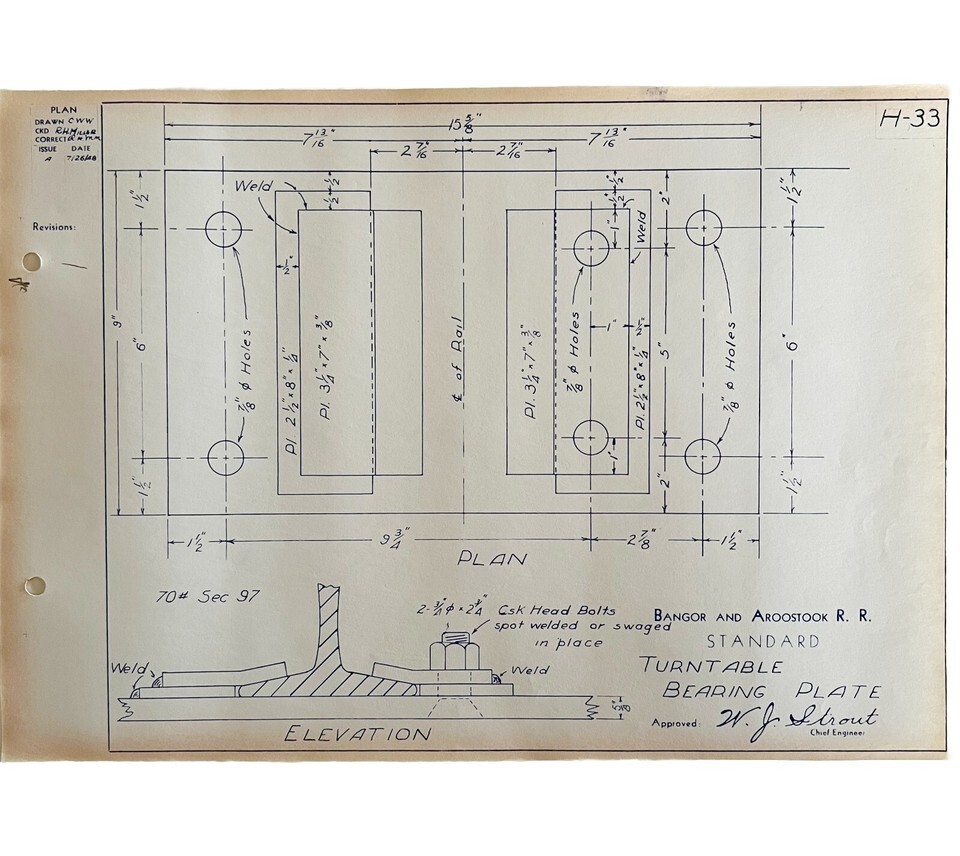 PLAN
DRAWN CWW
CKD R.H.MILLER
CORRECT
ISSUE DATE
A 7/26/48
Revisions:
H-33
15 5/8"
7 13/16" 7 13/16"
2 7/16" 2 7/16"
Weld
1 1/2" 1/2" 1/2" 1/2" 1/2" 2" 1 1/2"
1" Weld
1/2"
9" 6" 7/8" ϕ Holes 7/8" ϕ Holes 1" 1/2" 5" 7/8" ϕ Holes 6"
Pl. 2 1/2" x 8" x 1/4"
Pl. 3 1/4" x 7" x 3/8"
℄ of Rail
Pl. 3 1/4" x 7" x 3/8"
Pl. 2 1/2" x 8" x 1/4"
1 1/2" 1" 2" 1 1/2"
1 1/2" 9 3/4" 2 7/8" 1 1/2"
PLAN
70# Sec 97
2-3/4" ϕ x 2 3/4" Csk Head Bolts
spot welded or swaged
in place
Weld Weld
5/8"
ELEVATION
BANGOR AND AROOSTOOK R. R.
STANDARD
TURNTABLE
BEARING PLATE
Approved: W. J. Strout
Chief Engineer